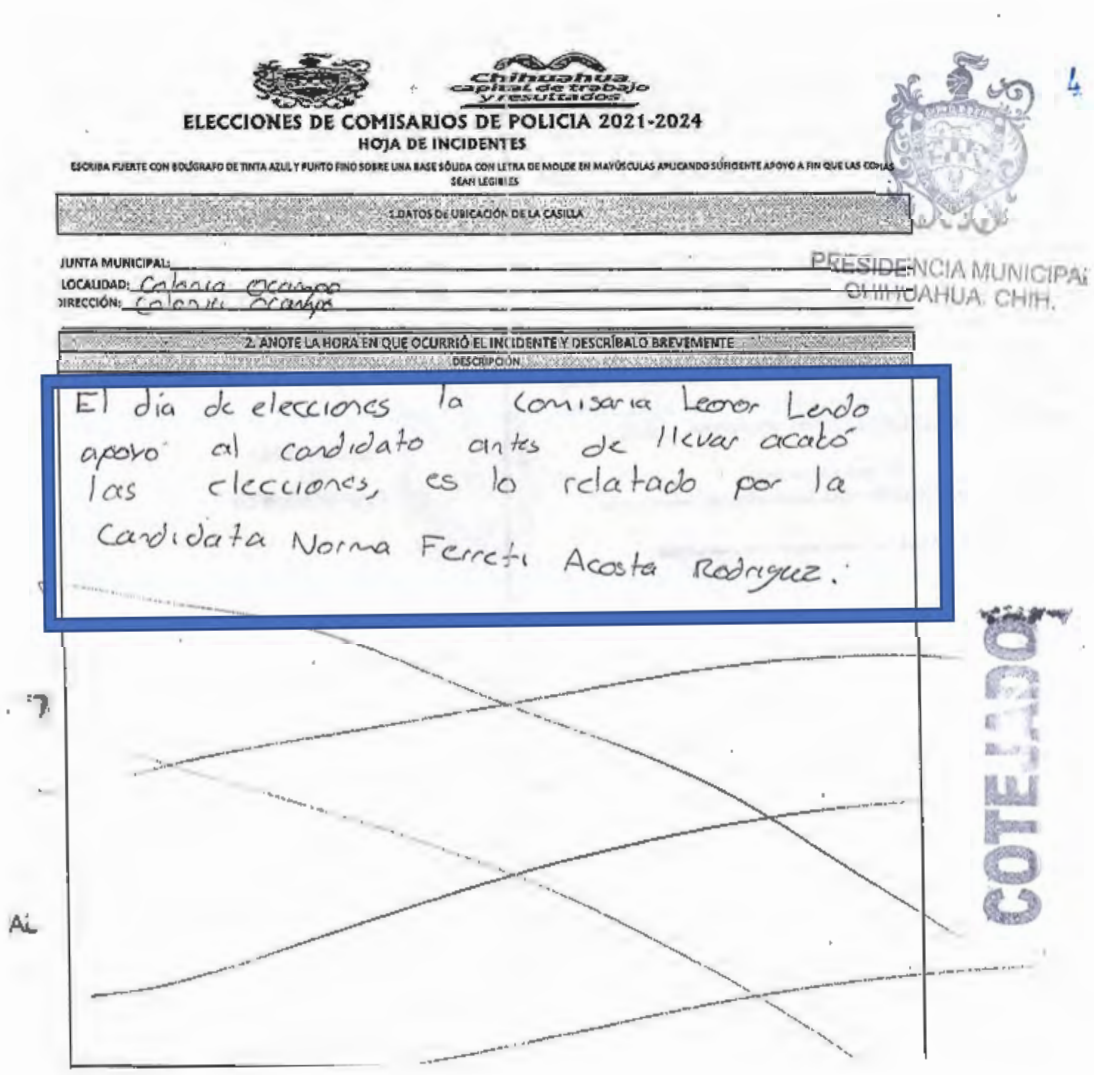 4
Chihuahua
capital de trabajo
y resultados
ELECCIONES DE COMISARIOS DE POLICIA 2021-2024
HOJA DE INCIDENTES
ESCRIBA FUERTE CON BOLÍGRAFO DE TINTA AZUL Y PUNTO FINO SOBRE UNA BASE SÓLIDA CON LETRA DE MOLDE EN MAYÚSCULAS APLICANDO SUFICIENTE APOYO A FIN QUE LAS COPIAS
SEAN LEGIBLES
1.DATOS DE UBICACIÓN DE LA CASILLA
JUNTA MUNICIPAL:
LOCALIDAD: Colonia Ocampo
DIRECCIÓN: Colonia Ocampo
PRESIDENCIA MUNICIPAL
CHIHUAHUA, CHIH.
2. ANOTE LA HORA EN QUE OCURRIÓ EL INCIDENTE Y DESCRÍBALO BREVEMENTE
DESCRIPCIÓN
El día de elecciones la Comisaria Leonor Lendo
apoyo al candidato antes de llevar acabó
las elecciones, es lo relatado por la
Candidata Norma Ferreti Acosta Rodriguez.
COTEJADO
AL